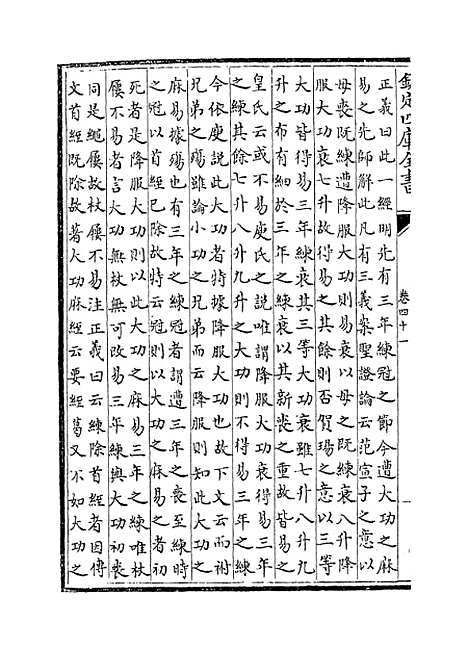 欽定四庫全書
卷四十一
正義曰此一經明先有三年練冠之節今遭大功之麻
易之先師解此凡有三義案聖證論云范宣子之意以
母喪既練遭降服大功則易衰以母之既練衰八升降
服大功衰七升故得易之其餘則否賀瑒之意以三等
大功皆得易三年練衰其三等大功衰雖七升八升九
升之布有細於三年之練衰以其新喪之重故皆易之
皇氏云或不易庾氏之說唯謂降服大功衰得易三年
之練其餘七升八升九升之大功則不得易三年之練
今依庾說此大功者特據降服大功也故下文云而祔
兄弟之殤雖論小功之兄弟而云降服則知此大功之
麻易據殤也有三年之練冠者謂遭三年之喪至練時
之冠以首絰已除故特云冠則以大功之麻易之者初
死者是降服大功則以此大功之麻易三年之練唯杖
屨不易者言大功無杖無可改易三年練與大功初喪
同是繩屨故杖屨不易注正義曰云練除首絰者因傳
文首絰既除故著大功麻絰云要絰葛又不如大功之